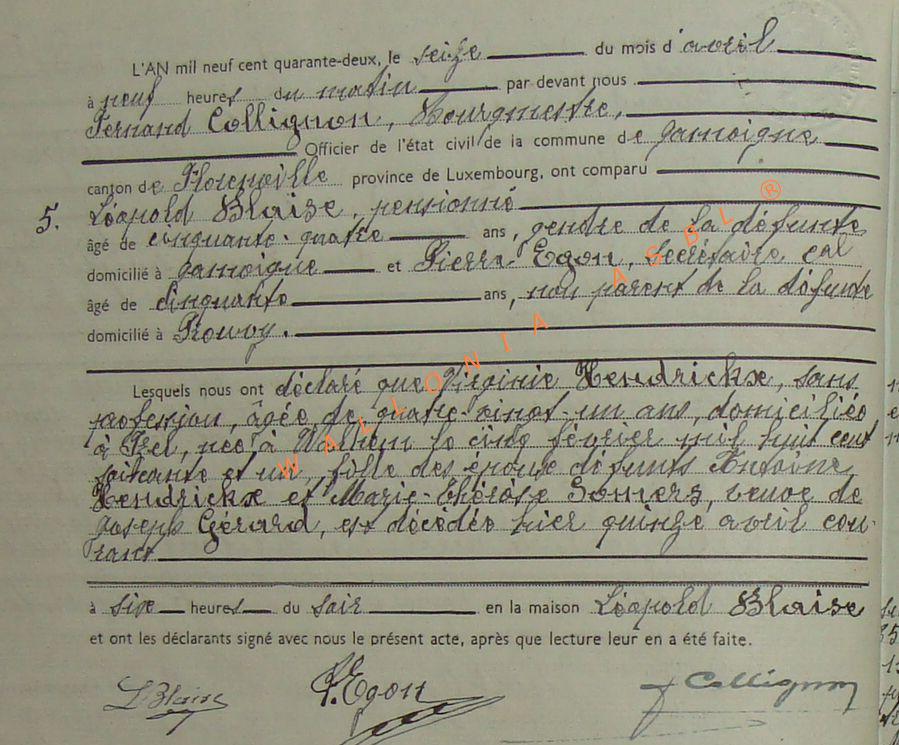 L'AN mil neuf cent quarante-deux, le seize du mois d'avril
à neuf heures du matin par devant nous
Fernand Collignon, Bourgmestre,
Officier de l'état civil de la commune de Jamoigne
canton de Florenville province de Luxembourg, ont comparu
5. Léopold Blaise, pensionné
âgé de cinquante-quatre ans, gendre de la défunte
domicilié à Jamoigne et Pierre Egon, Secrétaire cal
âgé de cinquante ans, non parent de la défunte
domicilié à Rouvoy.
Lesquels nous ont déclaré que Virginie Hendrickx, sans
profession, âgée de quatre-vingt-un ans, domiciliée
à Izel, née à Walhem le cinq février mil huit cent
soixante et un, fille des époux défunts Antoine
Hendrickx et Marie-Thérèse Somers, veuve de
Joseph Gérard, est décédée hier quinze avril cou-
rant
à six heures du soir en la maison Léopold Blaise
et ont les déclarants signé avec nous le présent acte, après que lecture leur en a été faite.
L Blaise P. Egon f Collignon
WALLONIA ASBL ®